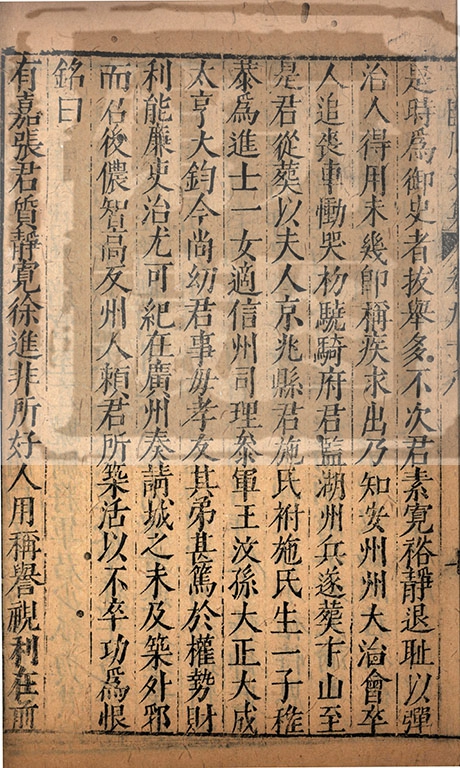 是時爲御史者拔舉多不次君素寬裕靜退耻以彈
治人得用未幾卽稱疾求出乃知安州州大治會卒
人追喪車慟哭初驍騎府君監湖州兵遂葬卞山至
是君從葬以夫人京兆縣君施氏祔施氏生一子稚
恭爲進士一女適信州司理叅軍王汶孫大正大成
太亨大鈞今尚幼君事母孝友其弟甚篤於權勢財
利能廉吏治尤可紀在廣州奏請城之未及築外郛
而召後儂智高反州人賴君所築活以不卒功爲恨
銘曰
有嘉張君質靜寬徐進非所好人用稱譽視利在前